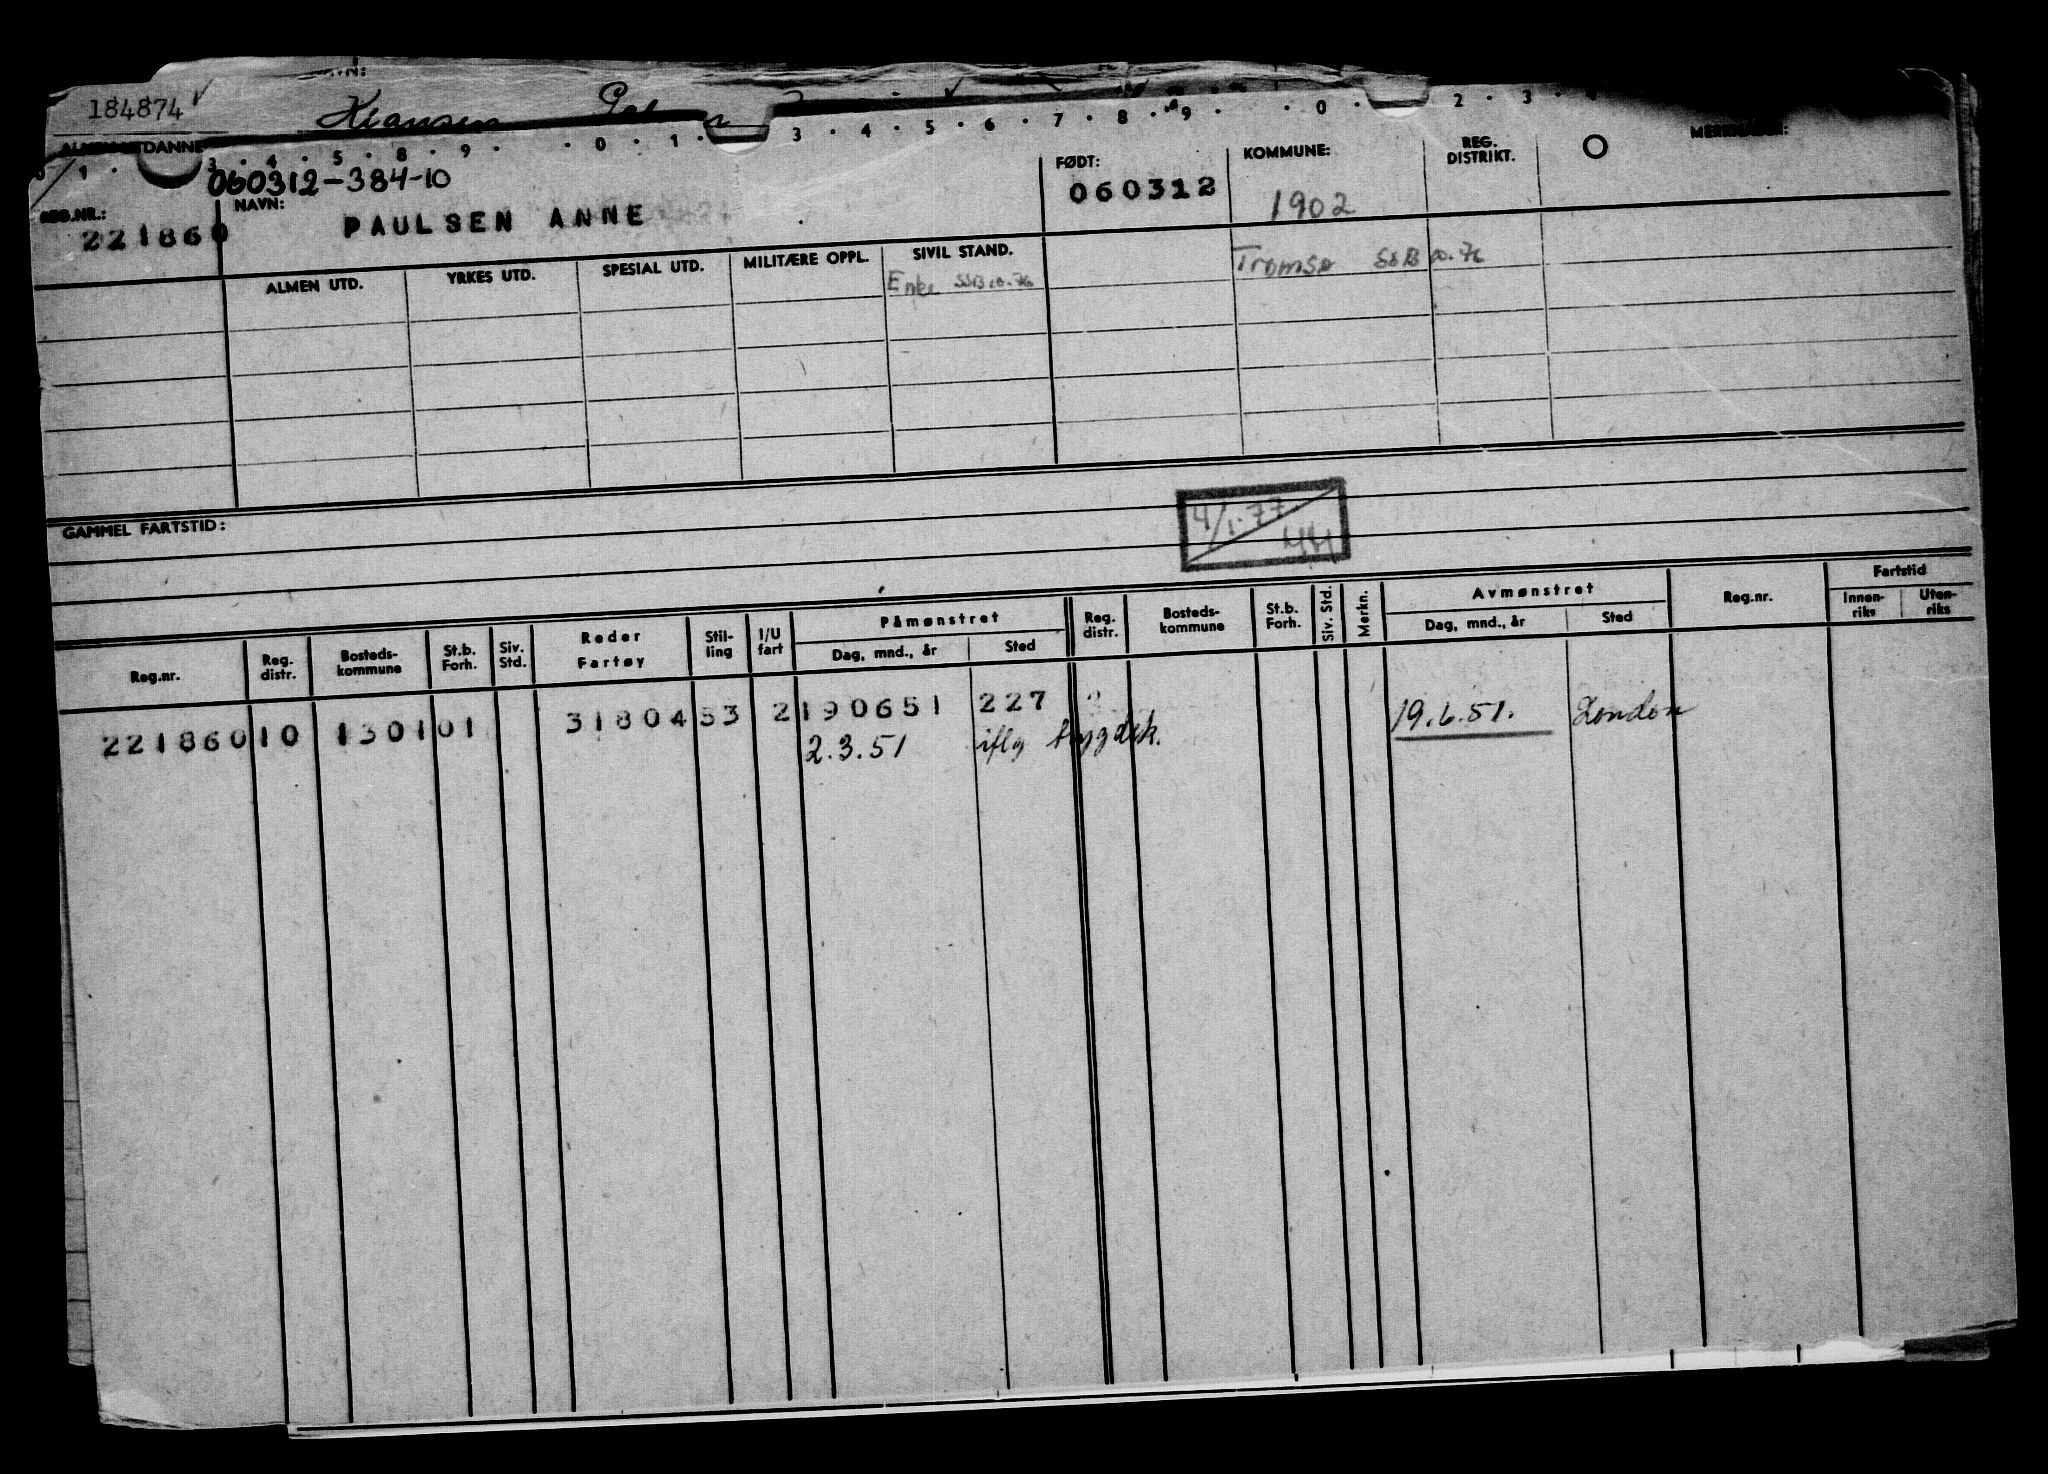 184874
Klausen
ALMENUTDANNE
1 · 3 · 4 · 5 · 8 · 9 · · 0 · 1 · 3 · 4 · 5 · 6 · 7 · 8 · 9 · · 0 · 2 · 3 ·
060312-384-10
REG.NR.: 221860
NAVN: PAULSEN ANNE
FØDT: 060312
KOMMUNE: 1902
REG. DISTRIKT.
MERKNADER:
ALMEN UTD. YRKES UTD. SPESIAL UTD. MILITÆRE OPPL. SIVIL STAND.
Enke SSB 10.76 Tromsø SSB 10.76
GAMMEL FARTSTID:
4/1.77
Reg.nr. Reg. distr. Bosteds- kommune St.b. Forh. Siv. Std. Reder Fartøy Stil- ling I/U fart Påmønstret Dag, mnd., år Sted Reg. distr. Bosteds- kommune St.b. Forh. Siv. Std. Merkn. Avmønstret Dag, mnd., år Sted Reg.nr. Fartstid Innen- riks Uten- riks
221860 10 1301 01 31804 53 2 190651 227 19.6.51. London
2.3.51 iflg trygdek.